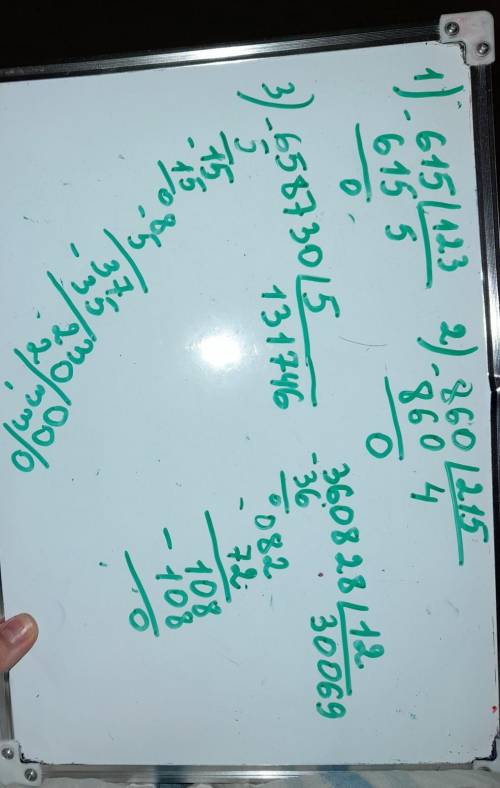 1) -615 | 123
615 5
0
2) -860 | 215
860 4
0
3) -658730 | 5
5 131746
-15
15
0
-8
5
-37
35
-23
20
-30
30
0
-360828 | 12
36 30069
0
-082
72
-108
108
0